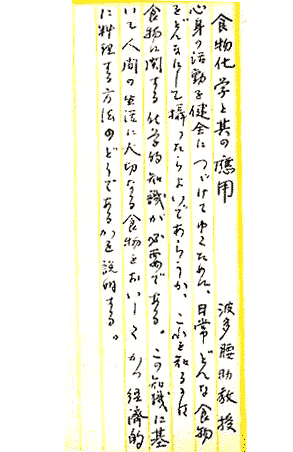 食物化学と其の應用
波多腰助教授
心身の活動を健全につづけてゆくために、日常どんな食物
をどんなにして攝ったらよいであらうか、これを知るには
食物に関する化学的知識が必要である。この知識に基
いて人間の生活に大切なる食物をおいしくかつ経済的
に料理する方法のどうであるかを説明する。